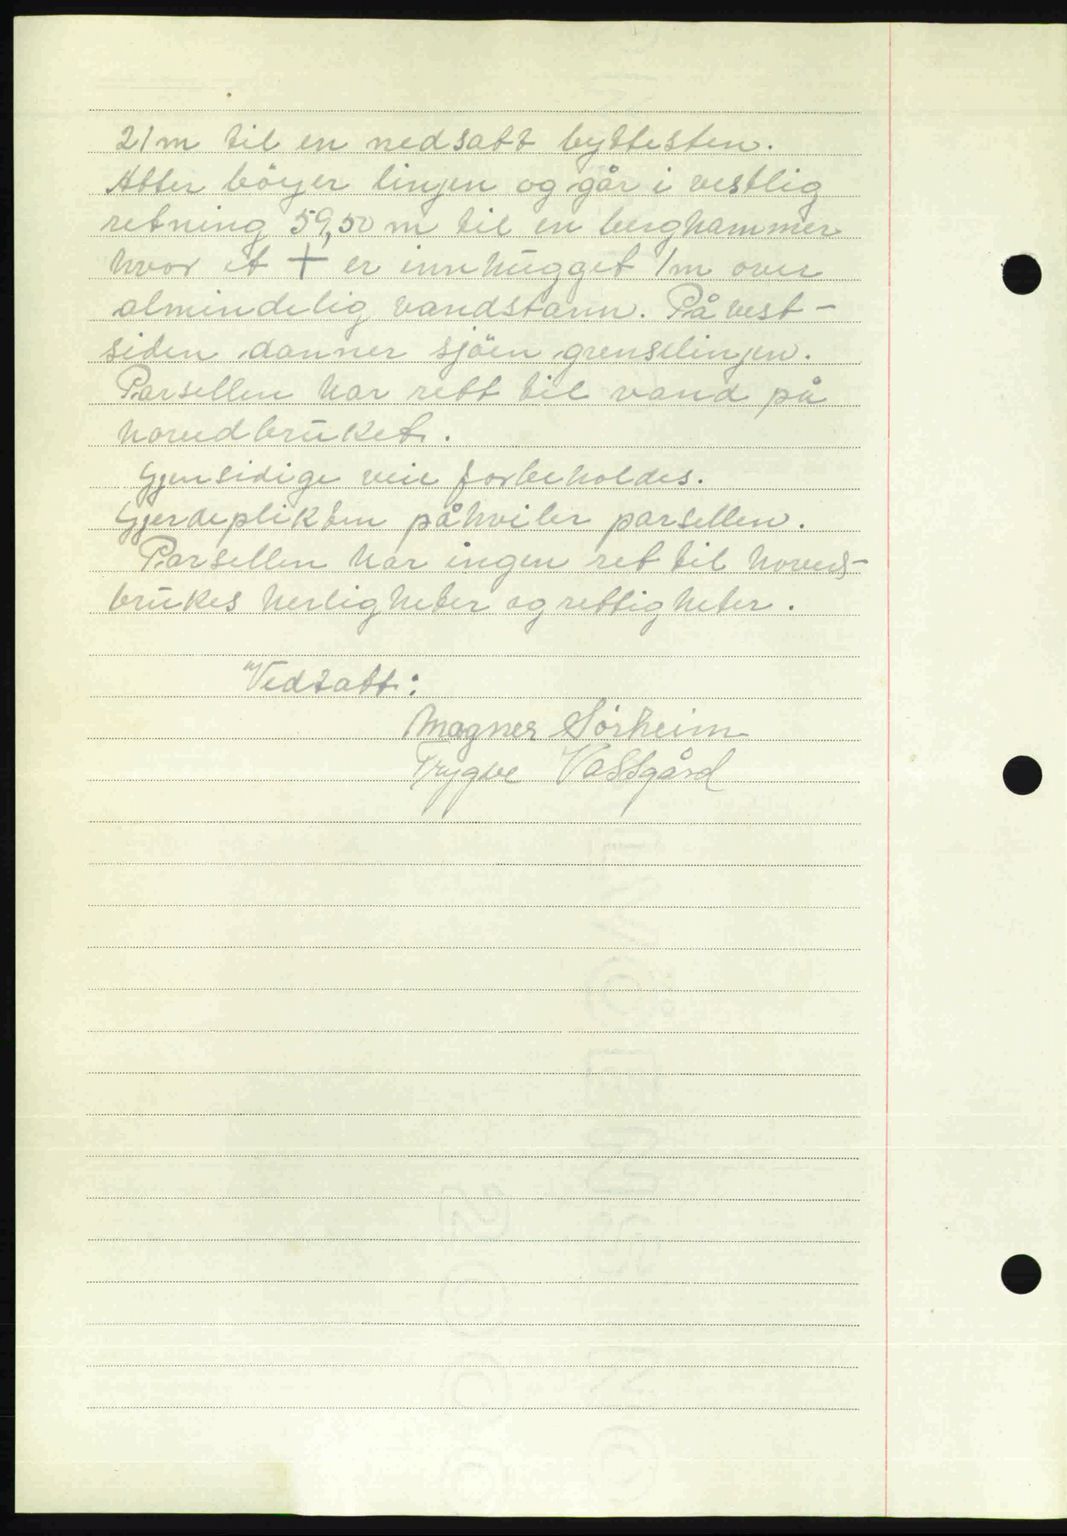 21 m til en nedsatt byttesten.
Atter böyer linjen og går i vestlig
retning 59,50 m til en berghammer
hvor et + er innhugget 1 m over
almindelig vandstann. På vest-
siden danner sjöen grenselinjen.
Parsellen har rett til vand på
hovedbruket.
Gjensidige veie forbeholdes.
Gjerdeplikten påhviler parsellen.
Parsellen har ingen ret til hoved-
brukes herligheter og rettigheter.
Vedtatt:
Magnes Sörheim
Trygve Vassgård